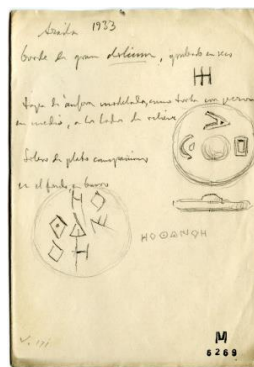 Azaila 1933
borde de gran dolium, grabado en seco
Tapa de ánfora modelada, como torta con pezón
en medio, a los lados de relieve
Solero de plato campaniense
en el fondo, en barro
M
6269